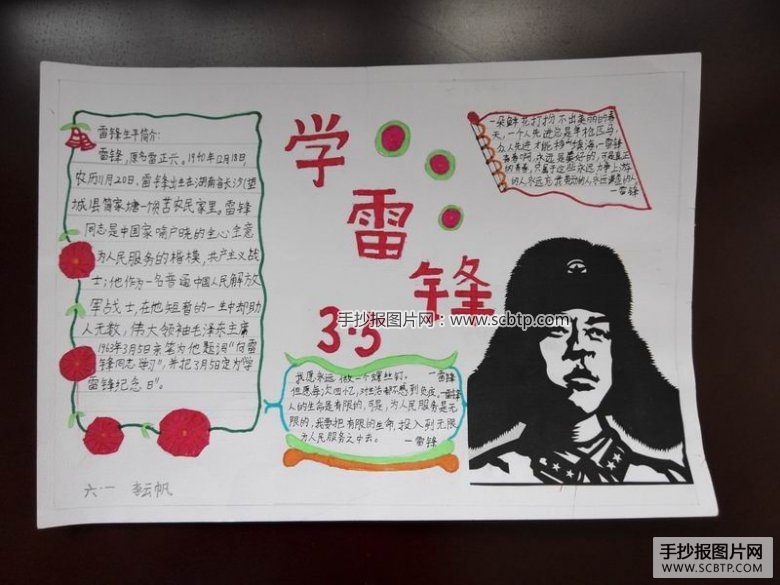 学
雷
锋
3·5
雷锋生平简介:
雷锋,原名雷正兴。1940年12月18日,
农历11月20日,雷锋出生在湖南省长沙望
城县简家塘一个贫苦农民家里。雷锋
同志是中国家喻户晓的全心全意
为人民服务的楷模,共产主义战
士;他作为一名普通中国人民解放
军战士,在他短暂的一生中却助
人无数,伟大领袖毛泽东主席
1963年3月5日亲笔为他题词“向雷
锋同志学习”,并把3月5日定为“学
雷锋纪念日”。
一朵鲜花打扮不出美丽的春
天,一个人先进总是单枪匹马,
众人先进才能移山填海。—雷锋
青春啊,永远是美好的,可是真正
的青春,只属于这些永远力争上游
的人,永远忘我劳动的人,永远谦虚的人
—雷锋
我愿永远做一个螺丝钉。 —雷锋
但愿每次回忆,对生活都不感到负疚。—雷锋
人的生命是有限的,可是,为人民服务是无
限的,我要把有限的生命,投入到无限
为人民服务之中去。 —雷锋
六·一 李云帆
手抄报图片网:www.scbtp.com
手抄报图片网
WWW.SCBTP.COM